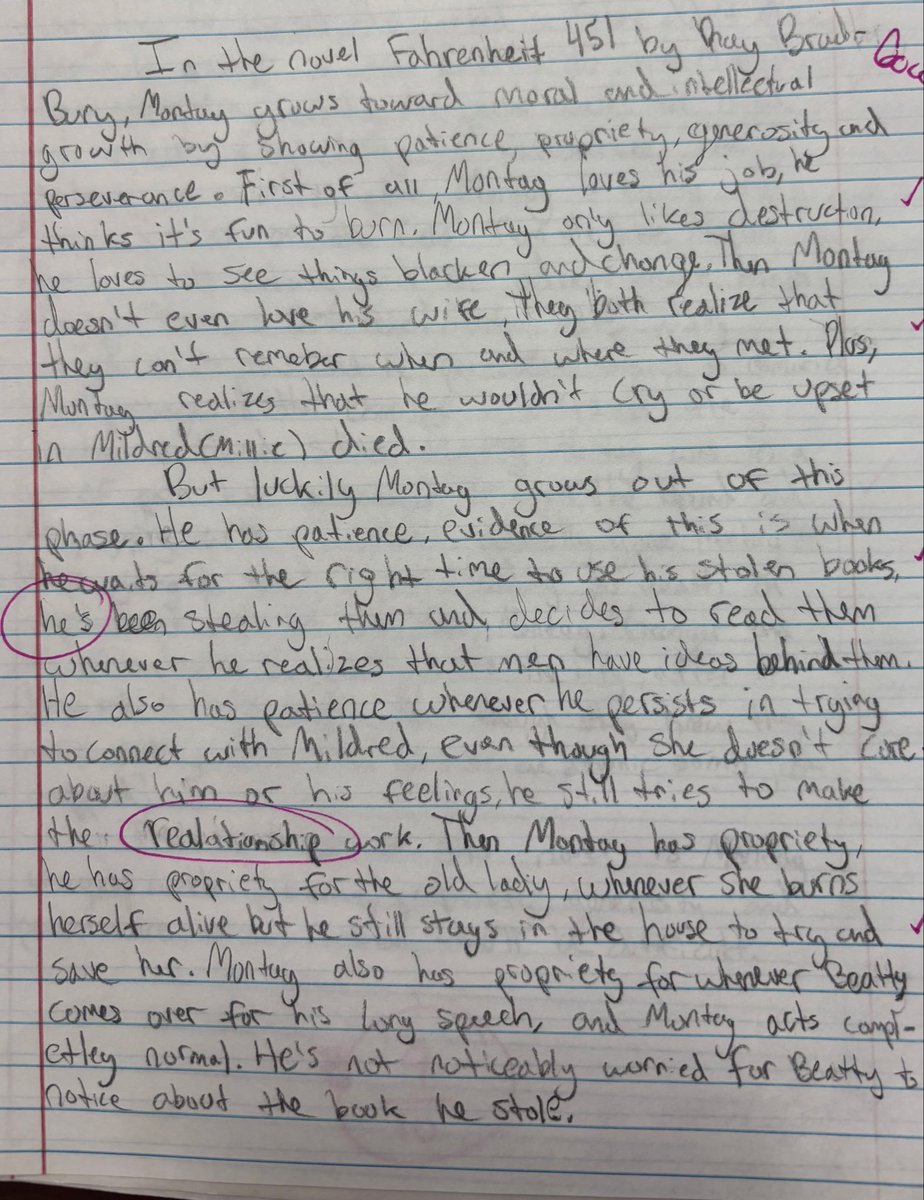 In the novel Fahrenheit 451 by Ray Brad-
Bury, Montag grows toward moral and intellectual
growth by showing patience, propriety, generosity and
perseverance. First of all, Montag loves his job, he
thinks it's fun to burn. Montag only likes destruction,
he loves to see things blacken and change. Then Montag
doesn't even love his wife, they both realize that
they can't remeber when and where they met. Plus,
Montag realizes that he wouldn't cry or be upset
in Mildred(Millie) died.
But luckily Montag grows out of this
phase. He has patience, evidence of this is when
he waits for the right time to use his stolen books,
he's been stealing them and decides to read them
whenever he realizes that men have ideas behind them.
He also has patience whenever he persists in trying
to connect with Mildred, even though she doesn't care
about him or his feelings, he still tries to make
the realationship work. Then Montag has propriety,
he has propriety for the old lady, whenever she burns
herself alive but he still stays in the house to try and
save her. Montag also has propriety for whenever Beatty
comes over for his long speech, and Montag acts compl-
etley normal. He's not noticeably worried for Beatty to
notice about the book he stole.